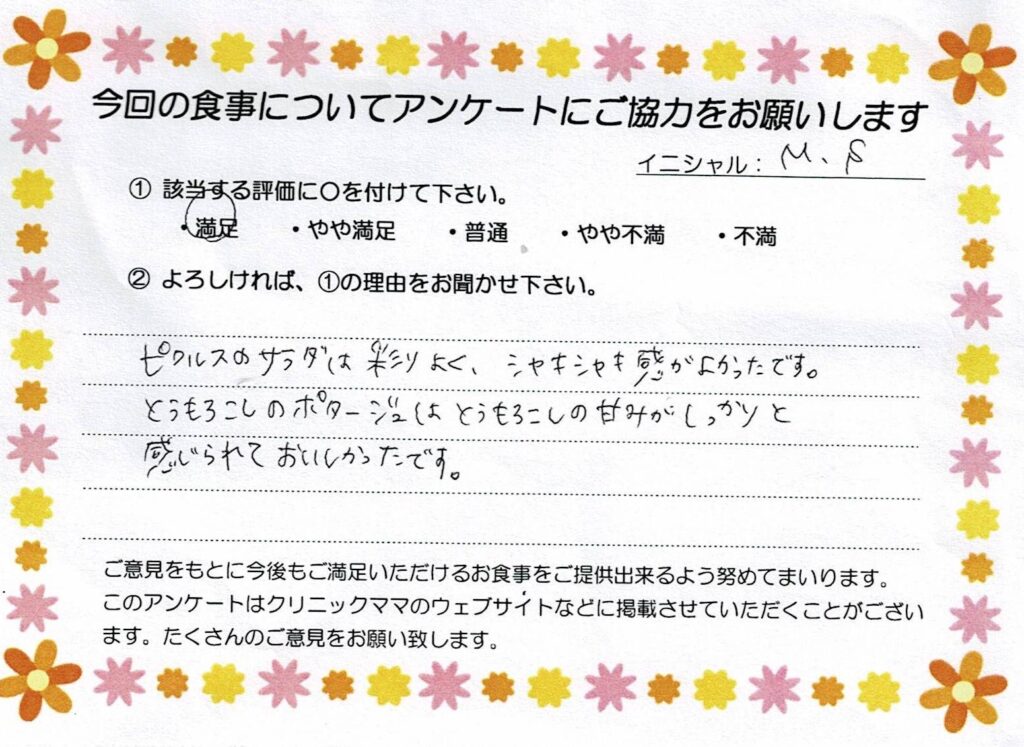 今回の食事についてアンケートにご協力をお願いします
イニシャル： M、S
① 該当する評価に○を付けて下さい。
・満足 ・やや満足 ・普通 ・やや不満 ・不満
② よろしければ、①の理由をお聞かせ下さい。
ピクルスのサラダは彩りよく、シャキシャキ感がよかったです。
とうもろこしのポタージュはとうもろこしの甘みがしっかりと
感じられておいしかったです。
ご意見をもとに今後もご満足いただけるお食事をご提供出来るよう努めてまいります。
このアンケートはクリニックママのウェブサイトなどに掲載させていただくことがござい
ます。たくさんのご意見をお願い致します。